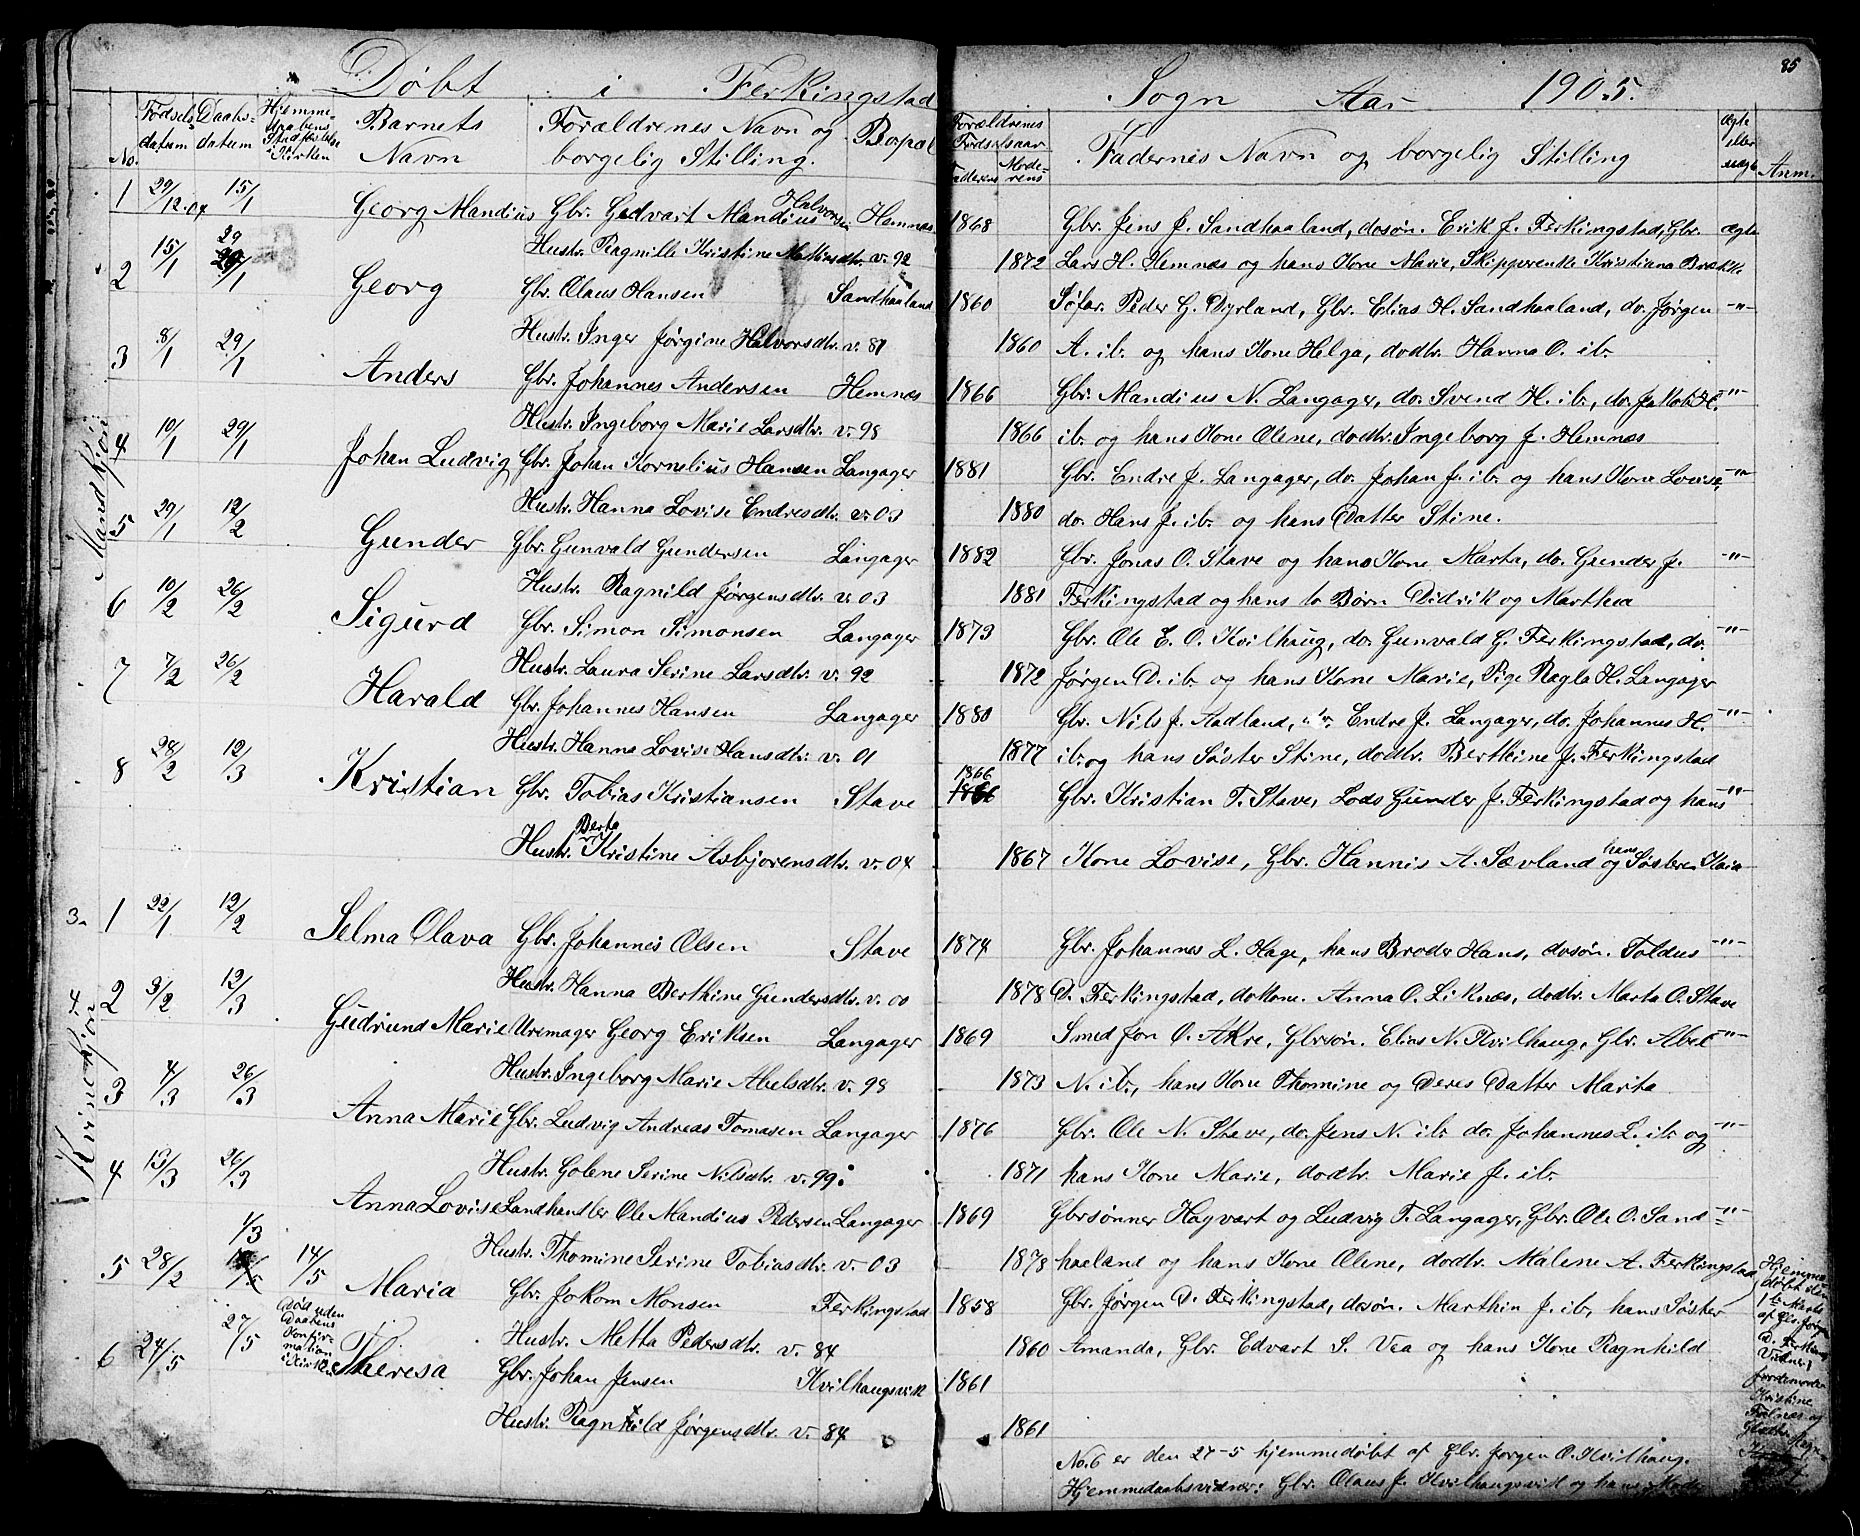 85
Døbt i Ferkingstad Sogn Aar 1905.
No. Fødselsdatum Daabsdatum Barnets Navn Forældrenes Navn og borgelig Stilling. Bopæl
Forældrenes Fødselsaar Faderens Moderens Faddernes Navn og borgelig Stilling ægte eller uægte Anm.
Mandkjøn
1 29/12.04 15/1 Georg Mandius Gbr. Gedvart Mandius Halvorsen Hemnæs 1868 Gbr. Jens J. Sandhaaland, dosøn. Erik J. Ferkingstad, Gbr. ægte
Hustr. Ragnille Kristine Mathiasdtr. v. 92 1872 Lars H. Hemnæs og hans Kone Marie, Skipperenke Kristiana
2 15/1 29/1 Georg Gbr. Olaus Hansen Sandhaaland 1860 Søfar. Peder G. Dyrland, Gbr. Elias H. Sandhaaland, do. Jørgen -"-
Hustr. Inger Jørgine Halvorsdtr. v. 81 1860 A. ib. og hans Kone Helga, dodtr. Hanna O. ib.
3 8/1 29/1 Anders Gbr. Johannes Andersen Hemnæs 1866 Gbr. Mandius N. Langager, do. Svend H. ib., do. Jakob H. -"-
Hustr. Ingeborg Marie Larsdtr. v. 98 1866 ib. og hans Kone Olene, dodtr. Ingeborg J. Hemnæs
4 10/1 29/1 Johan Ludvig Gbr. Johan Kornelius Hansen Langager 1881 Gbr. Endre J. Langager, do. Johan J. ib. og hans Kone Lovise, -"-
Hustr. Hanna Lovise Endresdtr. v. 03 1880 do. Hans J. ib. og hans Datter Stine.
5 29/1 12/2 Gunder Gbr. Gunvald Gundersen Langager 1882 Gbr. Jonas O. Stave og hans Kone Marta, do. Gunder J. -"-
Hustr. Ragnild Jørgensdtr. v. 03 1881 Ferkingstad og hans to Børn Didrik og Marthea
6 10/2 26/2 Sigurd Gbr. Simon Simonsen Langager 1873 Gbr. Ole E. O. Kvilhaug, do. Gunvald G. Ferkingstad, do. -"-
Hustr. Laura Serine Larsdtr. v. 92 1872 Jørgen D. ib. og hans Kone Marie, Pige Ragla H. Langager
7 7/2 26/2 Harald Gbr. Johannes Hansen Langager 1880 Gbr. Nils J. Aadland, Endre J. Langager, do. Johannes H. -"-
Hustr. Hanna Lovise Hansdtr. v. 01 1877 ib. og hans Søster Stine, dodtr. Berthine J. Ferkingstad
8 28/2 12/3 Kristian Gbr. Tobias Kristiansen Stave 1866 Gbr. Kristian T. Stave, Lods Gunder J. Ferkingstad og hans -"-
Hustr. Berta Kristine Asbjorensdtr. v. 04 1867 Kone Lovise, Gbr. Hannis A. Sævland og hans Søsteren Kaia
Kvinekjøn
1 22/1 12/2 Selma Olava Gbr. Johannes Olsen Stave 1874 Gbr. Johannes L. Hage, hans Broder Hans, dosøn. Toldus -"-
Hustr. Hanna Berthine Gundersdtr. v. 00 1878 D. Ferkingstad, dokone. Anna O. Liknæs, dodtr. Marta O. Stave
2 3/2 12/3 Gudrund Marie Uremager Georg Eriksen Langager 1869 Smed Jon O. Akre, Gbrsøn. Elias N. Kvilhaug, Gbr. Abel -"-
Hustr. Ingeborg Marie Abelsdtr. v. 98 1873 N. ib., hans Kone Thomine og Deres Datter Marita
3 4/3 26/3 Anna Marie Gbr. Ludvig Andreas Tomasen Langager 1876 Gbr. Ole N. Stave, do. Jens N. ib. do. Johannes L. ib. og -"-
Hustr. Golene Serine Nilsdtr. v. 99. 1871 hans Kone Marie, dodtr. Marie J. ib.
4 13/3 26/3 Anna Lovise Landhandler Ole Mandius Pedersen Langager 1869 Gbrsønner Hagvart og Ludvig T. Langager, Gbr. Ole O. Sand- -"-
Hustr. Thomine Serine Tobiasdtr. v. 03 1878 haaland og hans Kone Olene, dodtr. Malene A. Ferkingstad
5 28/2 1/3 14/5 Maria Gbr. Jokom Monsen Ferkingstad 1858 Gbr. Jørgen D. Ferkingstad, dosøn. Marthin J. ib., hans Søster
Hustr. Metta Pedersdtr. v. 84 1860 Amanda, Gbr. Edvart S. Vea og hans Kone Ragnhild
6 24/5 27/5 Død uden Daabens Konfirmation i Kirken Theresa Gbr. Johan Jensen Kvilhaugsvik 1861
Hustr. Ragnhild Jørgensdtr. v. 84 1861
No. 6 er den 27-5 hjemmedøbt af Gbr. Jørgen O. Kvilhaug.
Hjemmedaabsvidner: Gbr. Olaus J. Kvilhaugsvik og hans